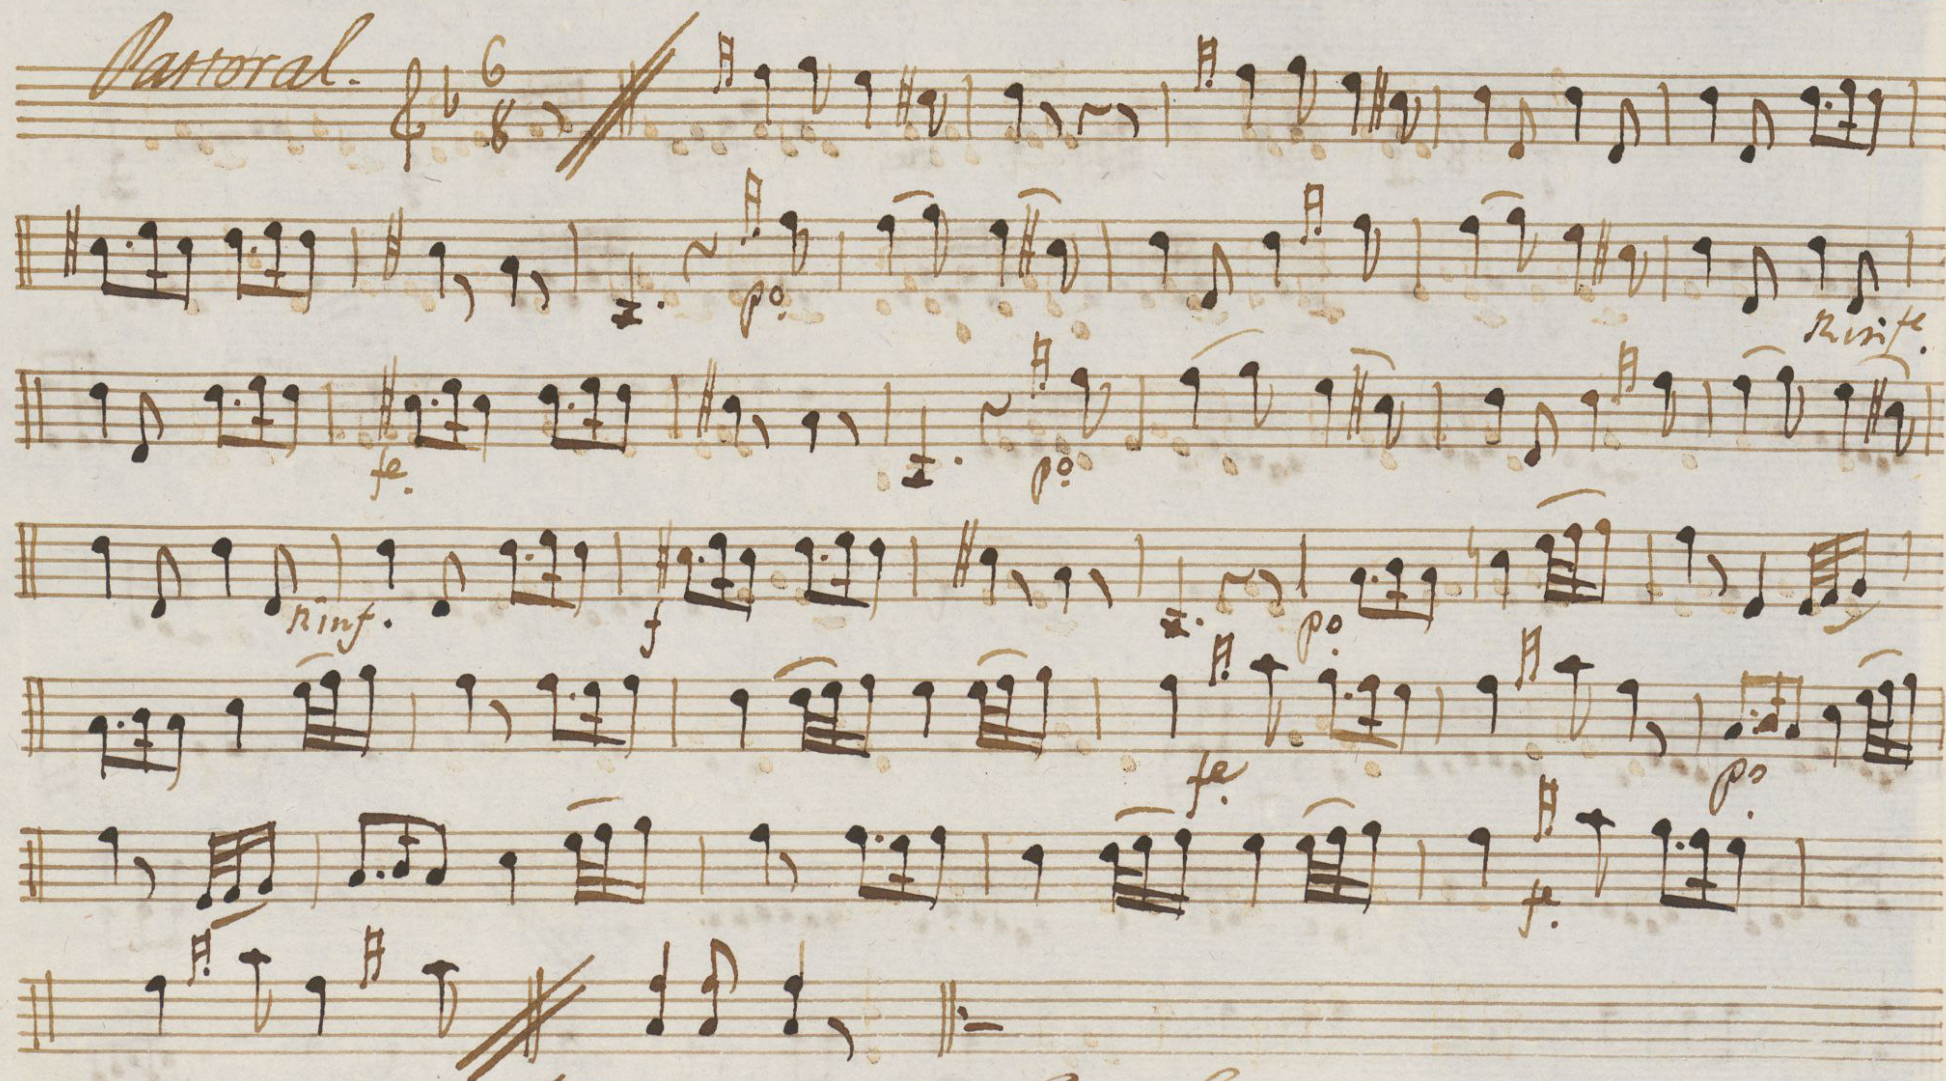 Pastoral.
6
8
po
Rinfe.
fe.
po
Rinf.
f
po
fe.
po
fe.